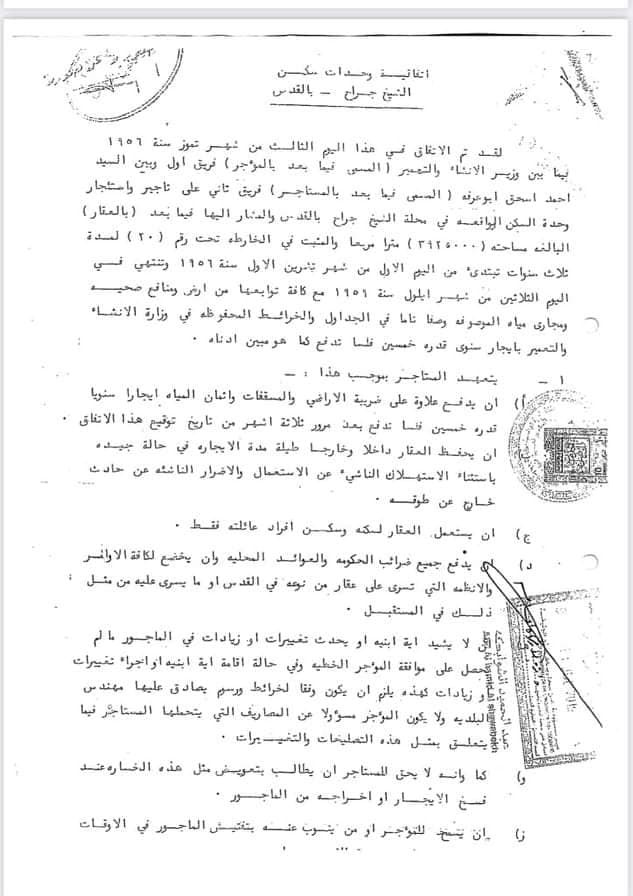 اتفاقية وحدات سكن
الشيخ جراح - بالقدس
لقد تم الاتفاق في هذا اليوم الثالث من شهر تموز سنة ١٩٥٦
فيما بين وزير الانشاء والتعمير ( المسمى فيما بعد بالمؤجر ) فريق اول وبين السيد
احمد اسحق ابوعرفه ( المسمى فيما بعد بالمستاجر ) فريق ثاني على تاجير واستئجار
وحدة السكن الواقعه في محلة الشيخ جراح بالقدس والمشار اليها فيما بعد ( بالعقار )
البالغه مساحته ( ) مترا مربعا والمثبت في الخارطه تحت رقم ( ٢٠ ) لمدة
ثلاث سنوات تبتدئ من اليوم الاول من شهر تشرين الاول سنة ١٩٥٦ وتنتهي في
اليوم الثلاثين من شهر ايلول سنة ١٩٥٩ مع كافة توابعها من ارض ومنافع صحيه
ومجارى مياه الموصوفه وصفا تاما في الجداول والخرائط المحفوظه في وزارة الانشاء
والتعمير بايجار سنوى قدره خمسين فلسا تدفع كما هو مبين ادناه .
١ - يتعهد المستاجر بموجب هذا : -
أ) ان يدفع علاوة على ضريبة الاراضي والمسقفات واثمان المياه ايجارا سنويا
قدره خمسين فلسا تدفع بعد مرور ثلاثة اشهر من تاريخ توقيع هذا الاتفاق .
ان يحفظ العقار داخلا وخارجا طيلة مدة الايجاره في حالة جيده
باستثناء الاستهلاك الناشيء عن الاستعمال والاضرار الناشئه عن حادث
خارج عن طوقه .
ج) ان يستعمل العقار لسكنه وسكن افراد عائلته فقط .
د) ان يدفع جميع ضرائب الحكومه والعوائد المحليه وان يخضع لكافة الاوامر
والانظمه التي تسرى على عقار من نوعه في القدس او ما يسرى عليه من مثل
ذلك في المستقبل .
ان لا يشيد اية ابنيه او يحدث تغييرات او زيادات في الماجور ما لم
يحصل على موافقة المؤجر الخطيه وفي حالة اقامة اية ابنيه او اجراء تغييرات
و زيادات كهذه يلزم ان يكون وفقا لخرائط ورسيم يصادق عليها مهندس
البلديه ولا يكون المؤجر مسؤولا عن المصاريف التي يتحملها المستاجر فيما
يتعلق بمثل هذه التصليحات والتغييرات .
و) كما وانه لا يحق للمستاجر ان يطالب بتعويض مثل هذه الخساره عند
فسخ الايجار او اخراجه من الماجور .
ز) ان يسمح للمؤجر او من ينوب عنه بتفتيش الماجور في الاوقات
عبد الحميد الشوابكه